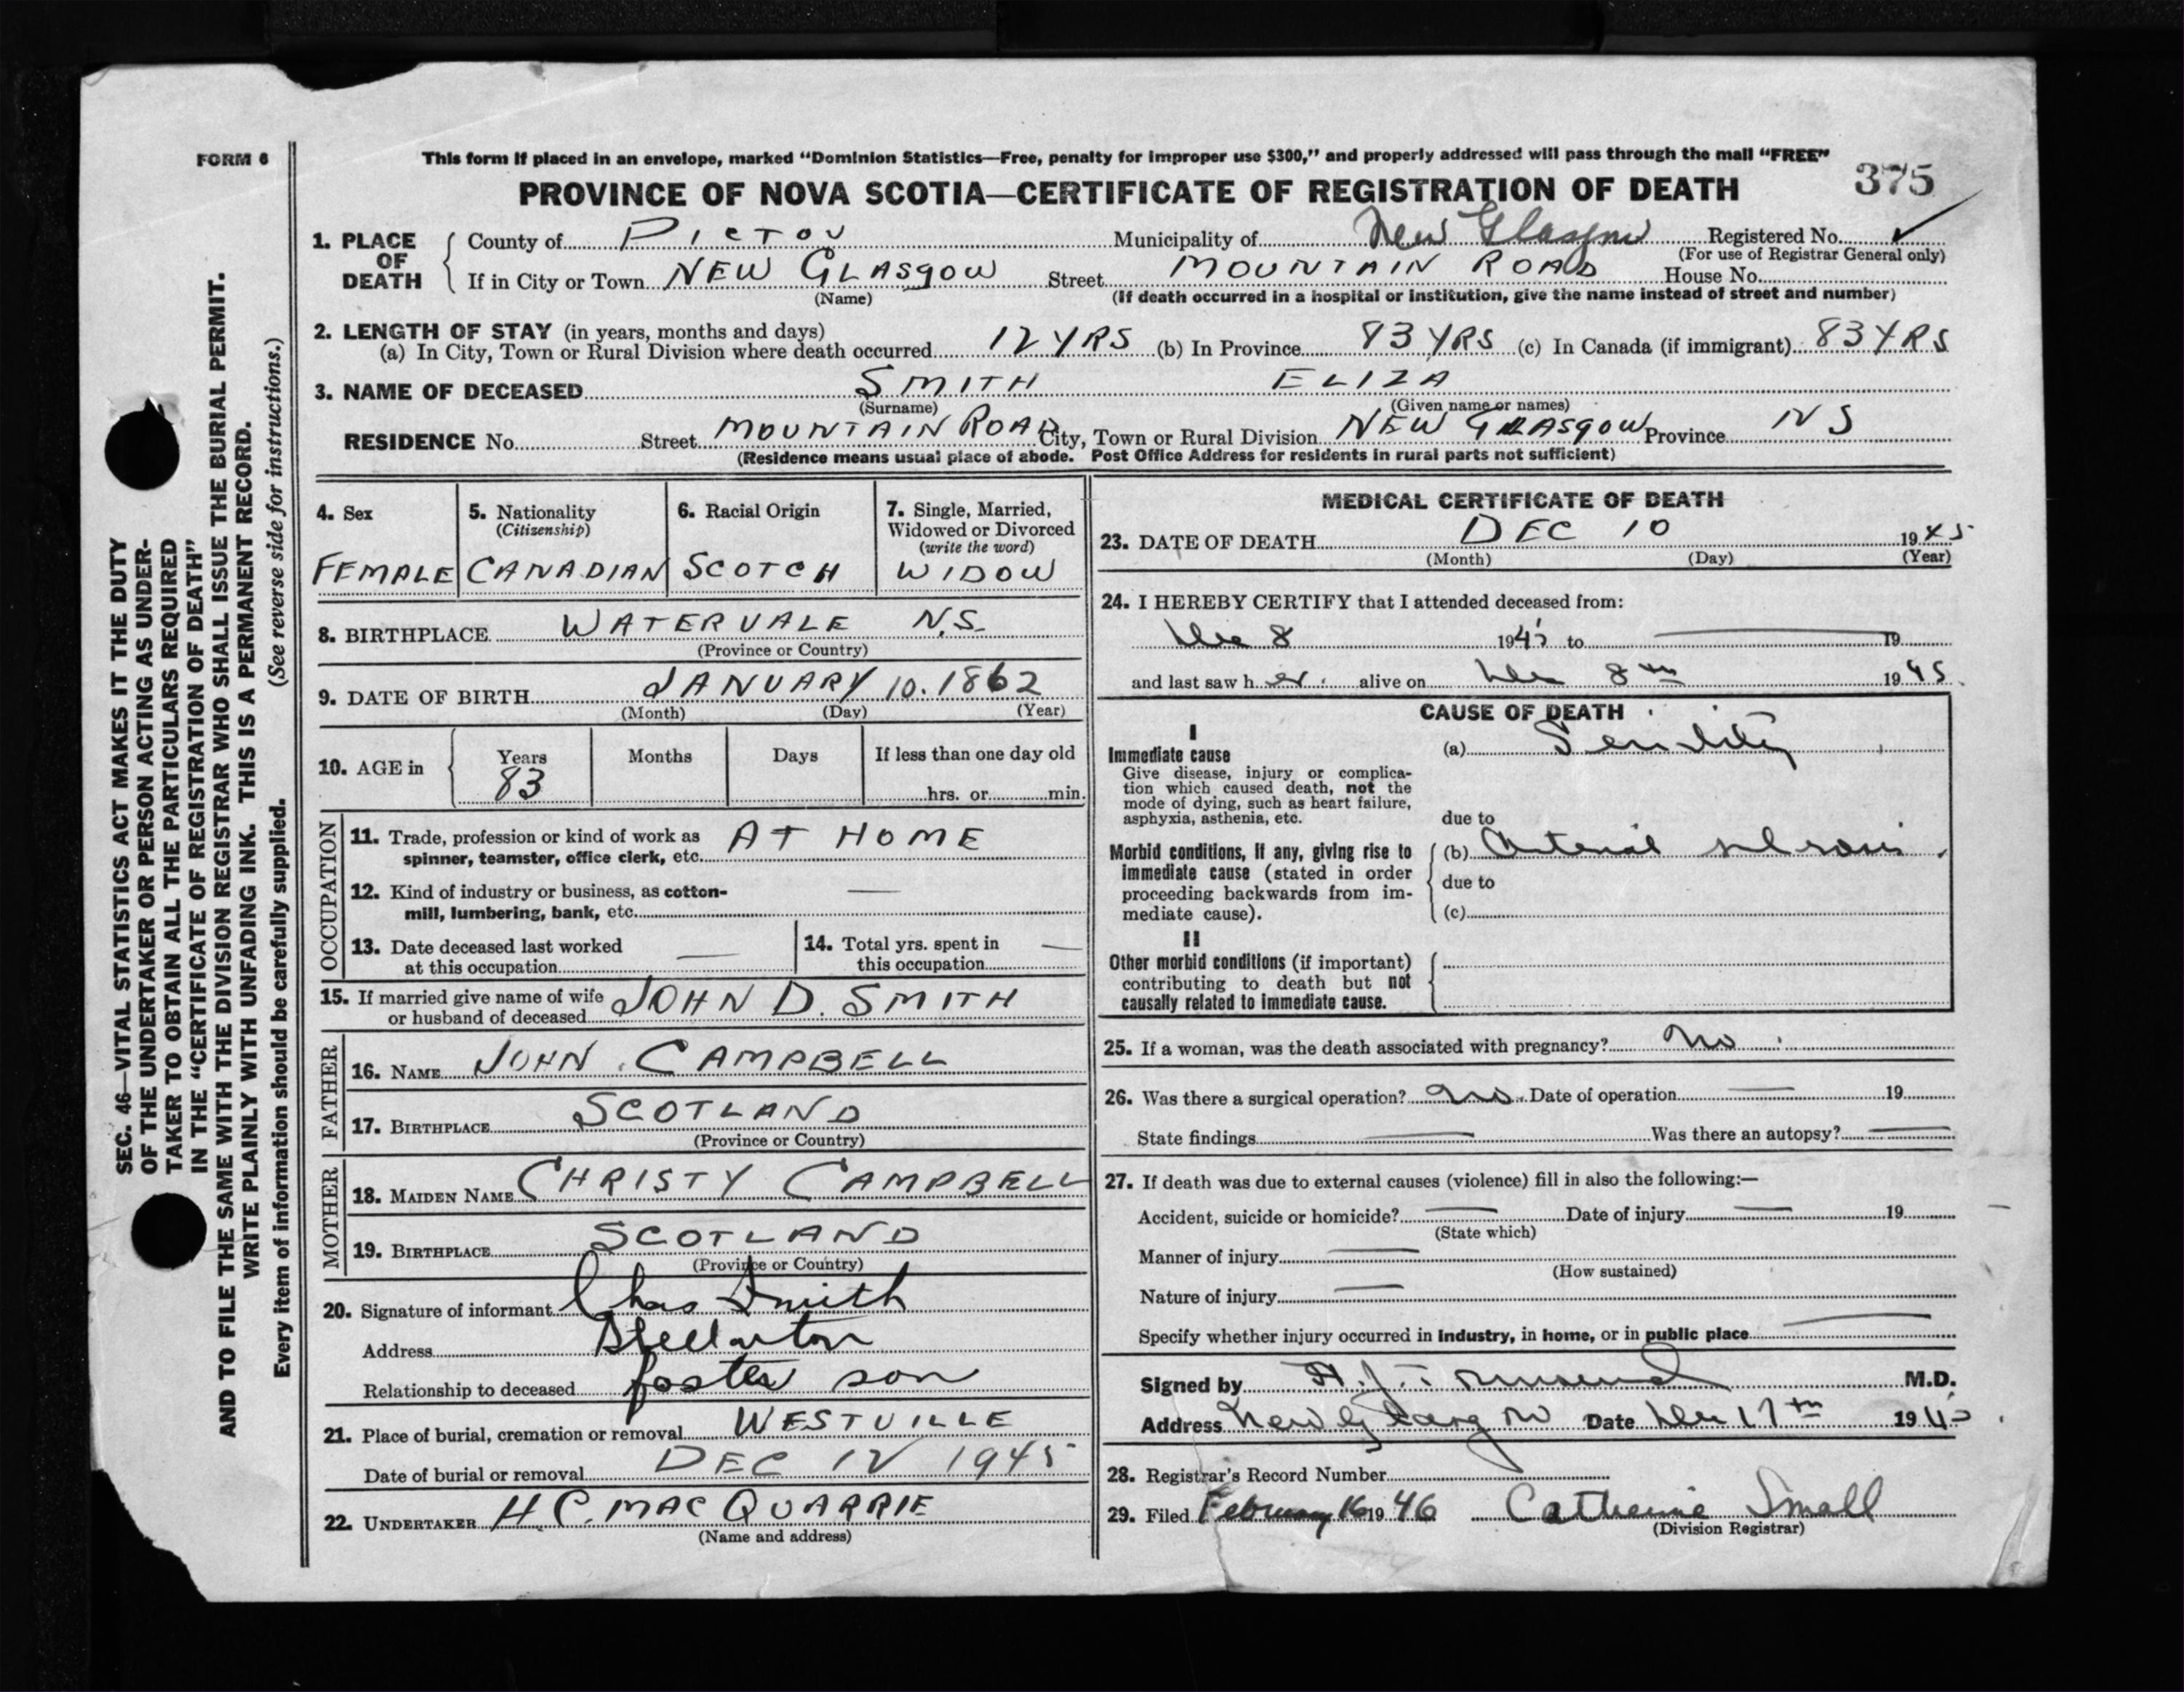 FORM 6
This form if placed in an envelope, marked “Dominion Statistics—Free, penalty for improper use $300,” and properly addressed will pass through the mail “FREE”
375
PROVINCE OF NOVA SCOTIA—CERTIFICATE OF REGISTRATION OF DEATH
1. PLACE OF DEATH
County of PICTOU Municipality of New Glasgow Registered No. ✓
(For use of Registrar General only)
If in City or Town NEW GLASGOW Street MOUNTAIN ROAD House No.
(Name) (If death occurred in a hospital or institution, give the name instead of street and number)
2. LENGTH OF STAY (in years, months and days)
(a) In City, Town or Rural Division where death occurred 12 YRS (b) In Province 83 YRS (c) In Canada (if immigrant) 83 YRS
3. NAME OF DECEASED SMITH ELIZA
(Surname) (Given name or names)
RESIDENCE No. Street MOUNTAIN ROAD City, Town or Rural Division NEW GLASGOW Province NS
(Residence means usual place of abode. Post Office Address for residents in rural parts not sufficient)
4. Sex
FEMALE
5. Nationality
(Citizenship)
CANADIAN
6. Racial Origin
SCOTCH
7. Single, Married,
Widowed or Divorced
(write the word)
WIDOW
8. BIRTHPLACE WATERVALE N.S.
(Province or Country)
9. DATE OF BIRTH JANUARY 10. 1862
(Month) (Day) (Year)
10. AGE in
Years Months Days If less than one day old
83 hrs. or min.
OCCUPATION
11. Trade, profession or kind of work as AT HOME
spinner, teamster, office clerk, etc.
12. Kind of industry or business, as cotton- —
mill, lumbering, bank, etc.
13. Date deceased last worked
at this occupation —
14. Total yrs. spent in
this occupation —
15. If married give name of wife
or husband of deceased JOHN D. SMITH
FATHER
16. NAME JOHN CAMPBELL
17. BIRTHPLACE SCOTLAND
(Province or Country)
MOTHER
18. MAIDEN NAME CHRISTY CAMPBELL
19. BIRTHPLACE SCOTLAND
(Province or Country)
20. Signature of informant Chas Smith
Address Stellarton
Relationship to deceased foster son
21. Place of burial, cremation or removal WESTVILLE
Date of burial or removal DEC 12 1945
22. UNDERTAKER H C. MACQUARRIE
(Name and address)
MEDICAL CERTIFICATE OF DEATH
23. DATE OF DEATH DEC 10 1945
(Month) (Day) (Year)
24. I HEREBY CERTIFY that I attended deceased from:
Dec 8 1945 to — 19
and last saw her alive on Dec 8th 1945
CAUSE OF DEATH
I
Immediate cause
Give disease, injury or complica-
tion which caused death, not the
mode of dying, such as heart failure,
asphyxia, asthenia, etc.
(a) Senility
due to
Morbid conditions, if any, giving rise to
immediate cause (stated in order
proceeding backwards from im-
mediate cause).
(b) Arterial sclerosis
due to
(c)
II
Other morbid conditions (if important)
contributing to death but not
causally related to immediate cause.
25. If a woman, was the death associated with pregnancy? No
26. Was there a surgical operation? No. Date of operation — 19
State findings — Was there an autopsy? —
27. If death was due to external causes (violence) fill in also the following:—
Accident, suicide or homicide? — Date of injury — 19
(State which)
Manner of injury —
(How sustained)
Nature of injury —
Specify whether injury occurred in industry, in home, or in public place —
Signed by H. J. Townsend M.D.
Address New Glasgow Date Dec 17th 1945
28. Registrar's Record Number
29. Filed February 16 1946 Catherine Small
(Division Registrar)
SEC. 46—VITAL STATISTICS ACT MAKES IT THE DUTY
OF THE UNDERTAKER OR PERSON ACTING AS UNDER-
TAKER TO OBTAIN ALL THE PARTICULARS REQUIRED
IN THE “CERTIFICATE OF REGISTRATION OF DEATH”
AND TO FILE THE SAME WITH THE DIVISION REGISTRAR WHO SHALL ISSUE THE BURIAL PERMIT.
WRITE PLAINLY WITH UNFADING INK. THIS IS A PERMANENT RECORD.
Every item of information should be carefully supplied. (See reverse side for instructions.)